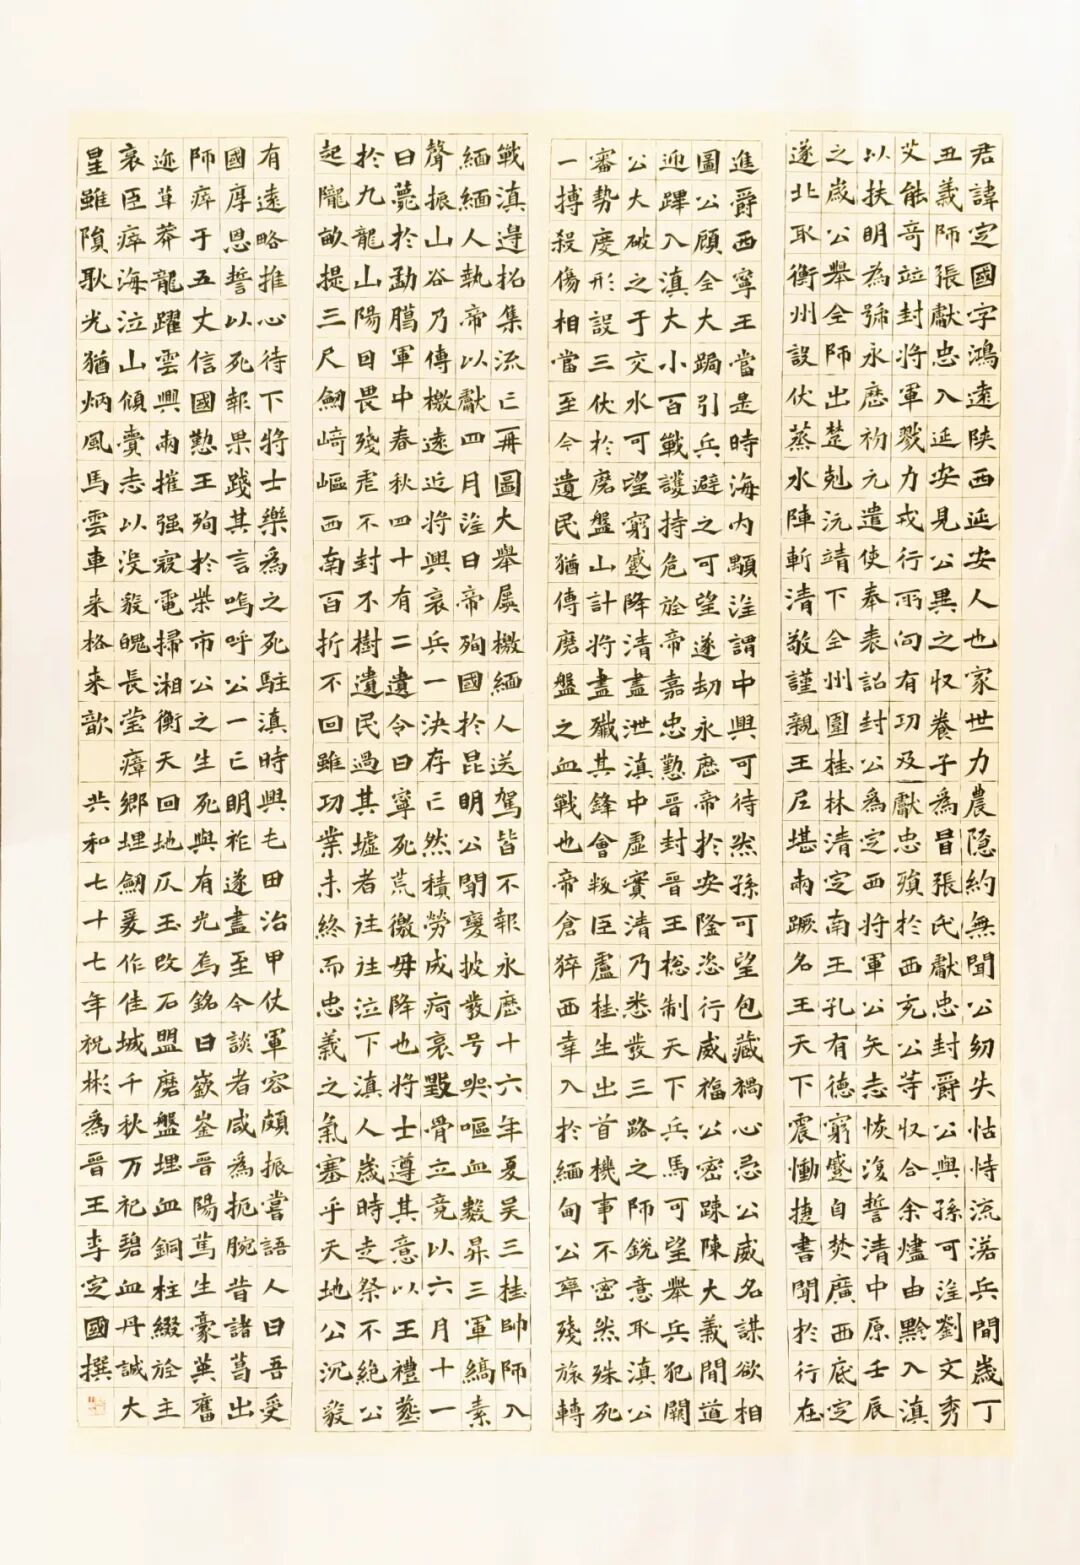 君諱定國字鴻遠陝西延安人也家世力農隐約無聞公幼失怙恃流落兵間歲丁
丑義師張獻忠入延安見公異之収養子為冒張氏獻忠封爵公與孫可望劉文秀
艾能奇竝封將軍戮力戎行而向有功及獻忠殞於西充公等収合余燼由黔入滇
以扶明為號永厯初元遣使奉表詔封公為定西將軍公矢志恢復誓清中原壬辰
之歲公舉全師出楚剋沅靖下全州圍桂林清定南王孔有德窮蹙自焚廣西底定
遂北取衡州設伏蒸水陣斬清敬謹親王尼堪兩蹶名王天下震慟捷書聞於行在
進爵西寧王當是時海内顒望謂中興可待然孫可望包藏禍心忌公威名謀欲相
圖公顧全大跼引兵避之可望遂劫永厯帝於安隆恣行威福公密踈陳大義間道
迎蹕入滇大小百戰護持危於帝嘉忠懃晉封晉王総制天下兵馬可望舉兵犯闕
公大破之于交水可望窮蹙降清盡泄滇中虛實清乃悉發三路之師銳意取滇公
審勢度形設三伏於磨盤山計將盡殲其鋒會叛臣盧桂生出首機事不密然殊死
一搏殺傷相當至今遺民猶傳磨盤之血戰也帝倉猝西幸入於緬甸公率殘旅轉
戰滇邉招集流亡再圖大舉屢檄緬人送駕皆不報永厯十六年夏吳三桂帥師入
緬緬人執帝以獻四月望日帝殉國於昆明公聞變披發号哭嘔血數昇三軍縞素
聲振山谷乃傳檄遠近將興哀兵一決存亡然積勞成疴哀毀骨立竟以六月十一
日薨於勐臘軍中春秋四十有二遺令曰寧死荒徼毋降也將士遵其意以王禮葬
於九龍山陽因畏殘虐不封不樹遺民過其墟者往往泣下滇人歲時走祭不絶公
起隴畝提三尺劒崎嶇西南百折不回雖功業未終而忠義之氣塞乎天地公沉毅
有遠略推心待下將士樂為之死駐滇時興屯田治甲仗軍容頗振嘗語人曰吾受
國厚恩誓以死報果踐其言嗚呼公一亡明祚遂盡至今談者咸為扼腕昔諸葛出
師瘁于五丈信國懃王殉於柴市公之生死與有光焉銘曰嶽峚晉陽篤生豪英奮
迹草莽龍躍雲興雨摧强寇電掃湘衡天回地仄玉改石盟磨盤埋血銅柱綴於主
哀臣瘁海泣山傾賫志以没毅魄長瑩瘴鄉埋劒爰作佳城千秋万祀碧血丹誠大
星雖隕耿光猶炳風馬雲車来格来歆 共和七十七年祝彬為晉王李定國撰